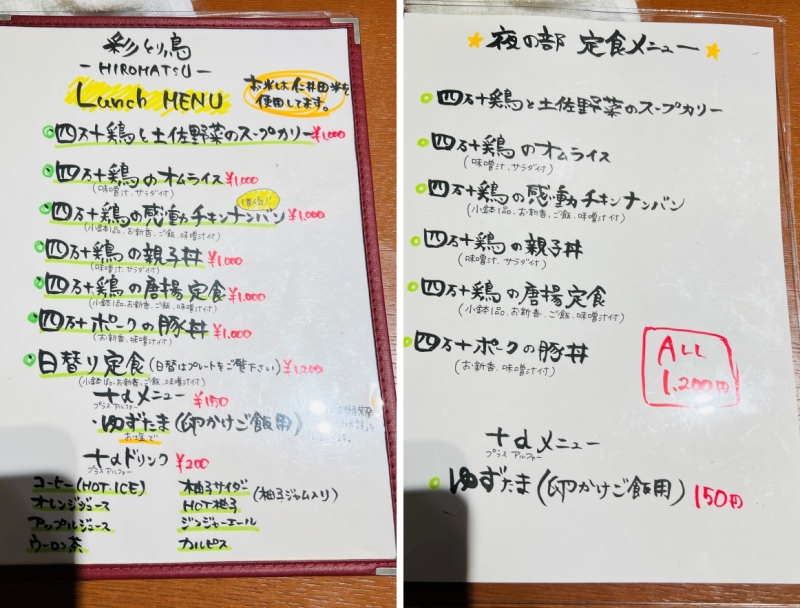 彩とり鳥
-HIROMATSU-
Lunch MENU
お米は仁井田米を
使用してます。
四万十鶏と土佐野菜のスープカリー ¥1,000
四万十鶏のオムライス ¥1,000
(味噌汁.サラダ付)
人気!!
四万十鶏の感動チキンナンバン ¥1,000
(小鉢1品.お新香.ご飯.味噌汁付)
四万十鶏の親子丼 ¥1,000
(味噌汁.サラダ付)
四万十鶏の唐揚定食 ¥1,000
(小鉢1品.お新香.ご飯.味噌汁付)
四万十ポークの豚丼 ¥1,000
(お新香.味噌汁付)
日替り定食(日替はプレートをご覧下さい) ¥1,200
(小鉢1品.お新香.ご飯.味噌汁付)
+αメニュー ¥150
プラスアルファー
・ゆずたま(卵かけご飯用)
お塩で
+αドリンク ¥200
プラスアルファー
コーヒー(HOT.ICE)
オレンジジュース
アップルジュース
ウーロン茶
柚子サイダー(柚子ジャム入り)
HOT柚子
ジンジャーエール
カルピス
夜の部 定食メニュー
四万十鶏と土佐野菜のスープカリー
四万十鶏のオムライス
(味噌汁.サラダ付)
四万十鶏の感動チキンナンバン
(小鉢1品.お新香.ご飯.味噌汁付)
四万十鶏の親子丼
(味噌汁.サラダ付)
四万十鶏の唐揚定食
(小鉢1品.お新香.ご飯.味噌汁付)
四万十ポークの豚丼
(お新香.味噌汁付)
ALL
1,200円
+αメニュー
プラスアルファー
ゆずたま(卵かけご飯用) 150円